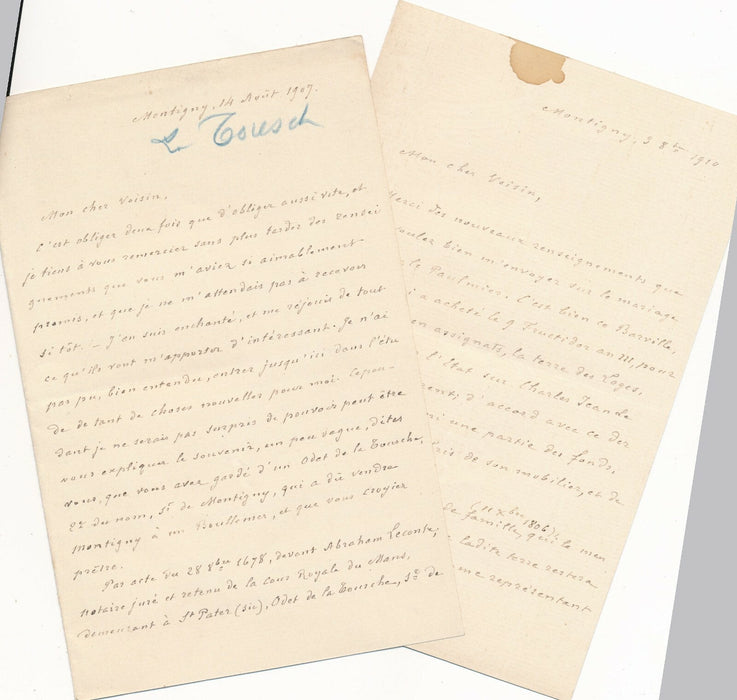 Montigny, 14 Août 1907.
La Touesch
Mon cher Voisin,
C'est obliger deux fois que d'obliger aussi vite, et
je tiens à vous remercier sans plus tarder des rensei
gnements que vous m'aviez si aimablement
promis, et que je ne m'attendais pas à recevoir
si tôt. — J'en suis enchanté, et me réjouis de tout
ce qu'ils vont m'apporter d'intéressant. Je n'ai
pas pu, bien entendu, entrer jusqu'ici dans l'étu
de de tant de choses nouvelles pour moi. Cepen-
dant je ne serais pas surpris de pouvoir peut être
vous expliquer le souvenir, un peu vague, dites
vous, que vous avez gardé d'un Odet de la Tousche,
2e du nom, Sr de Montigny, qui a dû vendre
Montigny à un Boullemer, et que vous croyiez
prêtre.
Par acte du 28 8bre 1678, devant Abraham Leconte,
notaire juré et retenu de la Cour Royale du Mans,
demeurant à St Pater (sic), Odet de la Tousche, Sr de
Montigny, 3 8bre 1910
Mon cher Voisin,
Merci des nouveaux renseignements que
voulez bien m'envoyer sur le mariage
le Paulmier. C'est bien ce Barville,
i a acheté le 9 Fructidor an III, pour
en assignats, la terre des Loges,
l'État sur Charles Jean Le
rent; d'accord avec ce der
ni une partie des fonds,
de son mobilier, et de
(11 Xbre 1806)
de famille, qui le men
ladite terre restera
me représentant